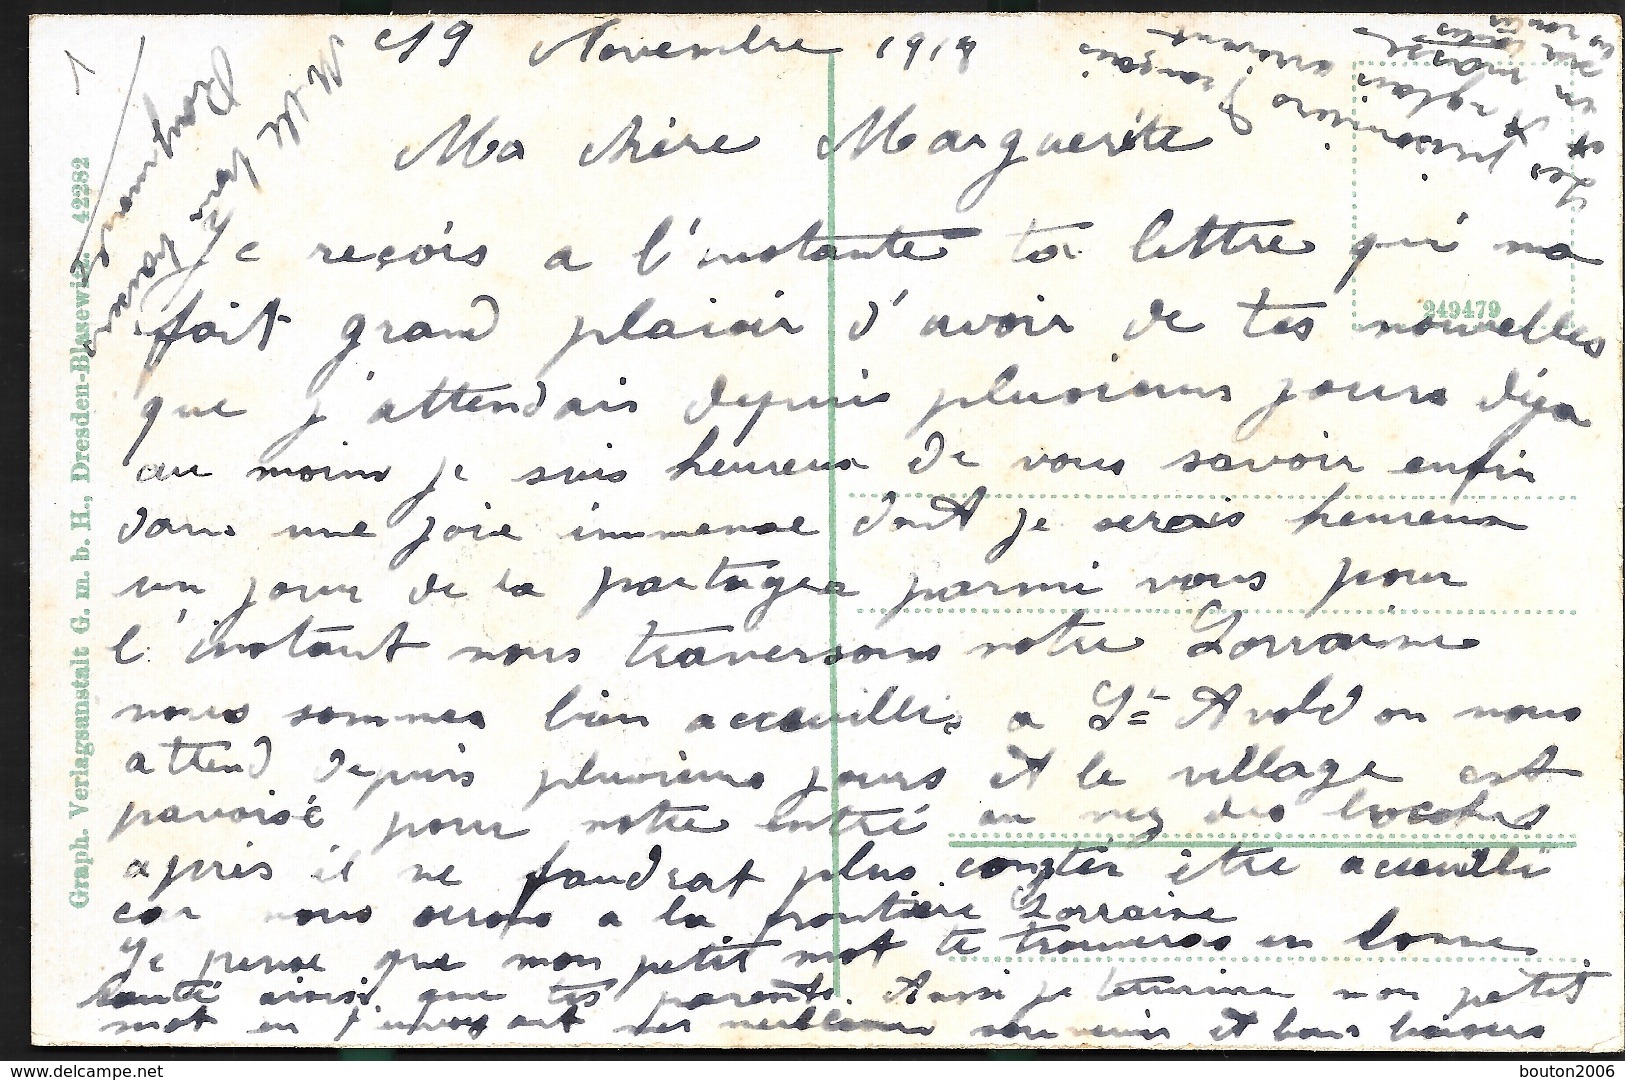 19 Novembre 1918
Ma chère Marguerite
Je reçois a l'instante ta lettre qui ma
fait grand plaisir d'avoir de tes nouvelles
que j'attendais depuis plusieurs jours déja
au moins je suis heureux de vous savoir enfin
dans une joie immense dont je serais heureux
un jour de la partager parmi vous pour
l'instant nous traversons notre Lorraine
nous sommes bien accueillis a St Avold on nous
attend depuis plusieurs jours et le village est
pavoisé pour notre entré au nez des boches
après il ne faudrat plus compter être accueilli
car nous serons a la frontière Lorraine
Je pense que mon petit mot te trouveras en bonne
santé ainsi que tes parents. Aussi je termine mon petit
mot en t'envoyant mes meilleurs souvenirs et bons baisers
Les prisonniers français
et Anglais arrivent
en masse
sur toutes
les routes
Graph. Verlagsanstalt G. m. b. H., Dresden-Blasewitz. 42282
249479
www.delcampe.net
bouton2006